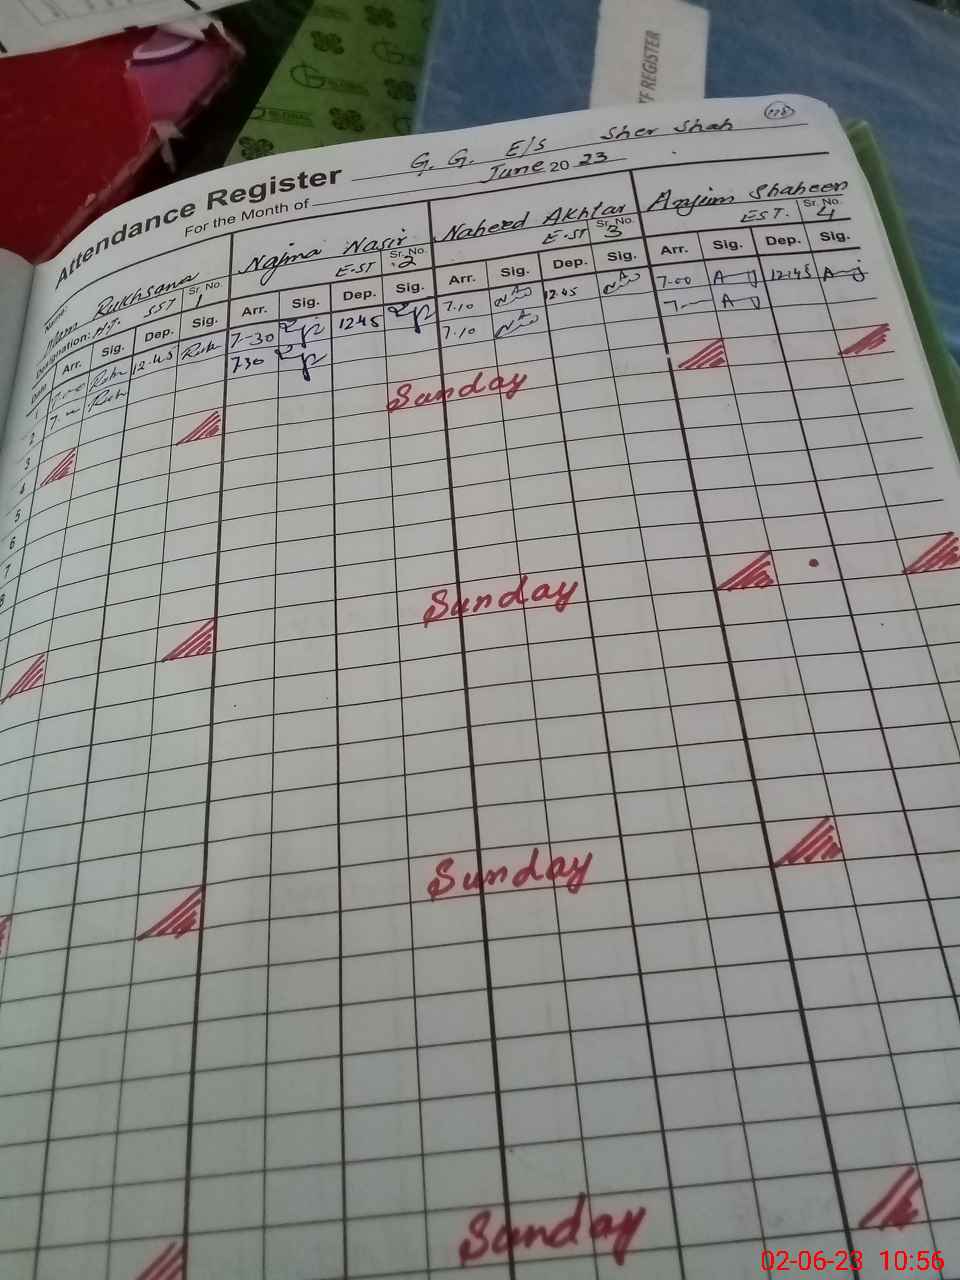 GLOBAL
FF REGISTER
118
Attendance Register G. G. E/S Sher Shah
For the Month of June 20 23
Name: Mam Rukhsana Najma Nasir Naheed Akhtar Anjum Shaheen
Designation: H.T. SST Sr. No. 1 E.ST Sr. No. 2 E.ST Sr. No. 3 EST. Sr. No. 4
Date Arr. Sig. Dep. Sig. Arr. Sig. Dep. Sig. Arr. Sig. Dep. Sig. Arr. Sig. Dep. Sig.
1 7.00 12.45 7.30 12.45 7.10 12.45 7.00 12.45
2 7.30 7.10
3
4 Sunday
5
6
7
8
Sunday
Sunday
Sunday
02-06-23 10:56